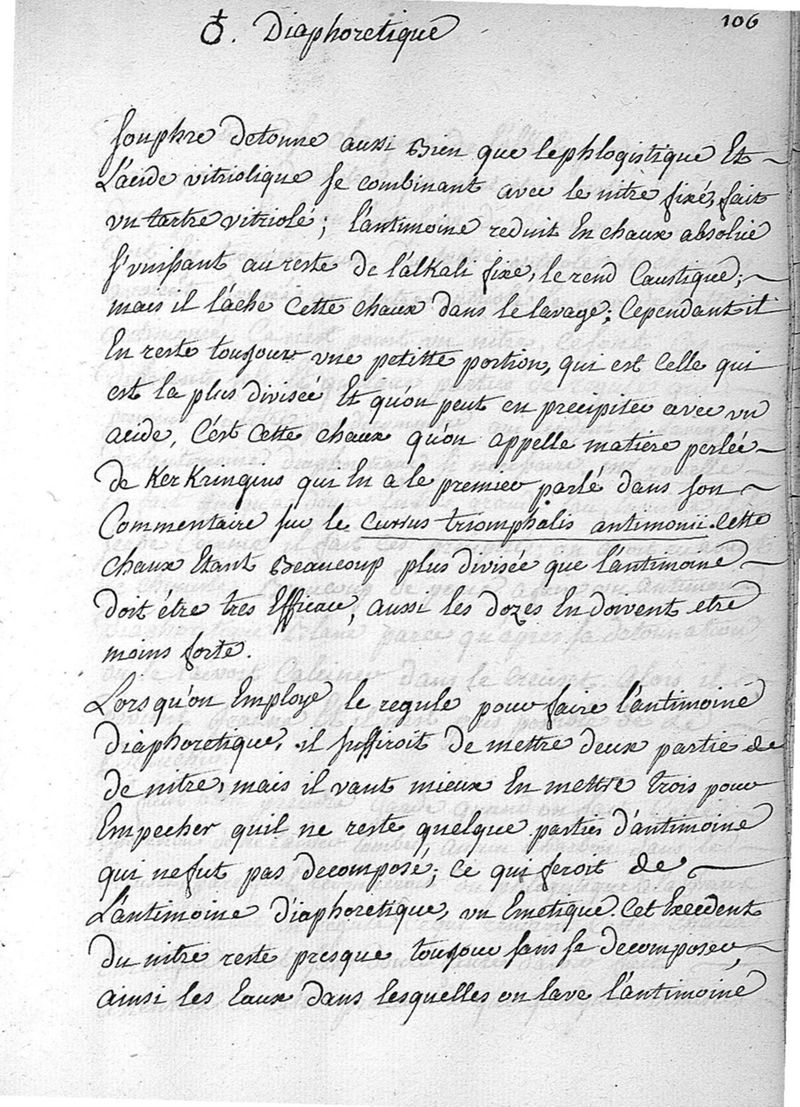 ♁. Diaphoretique
106
souphre detonne aussi Bien que lephlogistique Et
L'acide vitriolique se combinant avec le nitre fixé, fait
vn tartre vitriolé; l'antimoine reduit En chaux absolüe
s'vnissant au reste de l'alkali fixe, le rend Caustique;
mais il lâche Cette chaux dans le lavage; Cependant il
En reste toujour vne petite portion, qui est Celle qui
est la plus divisée Et quon peut en precipiter avec vn
acide, C'est Cette chaux qu'on appelle matiere perlée
de KerKringius qui En a le premier parlé dans son
Commentaire sur le Currus triomphalis antimonii. Cette
chaux Etant Beaucoup plus divisée que l'antimoine
doit être tres Efficace, aussi les dozes En doivent etre
moins forte.
Lorsqu'on Employe le regule pour faire l'antimoine
diaphoretique, il suffiroit de mettre deux partie de
de nitre, mais il vaut mieux En mettre trois pour
Empecher quil ne reste quelque parties d'antimoine
qui ne fut pas decomposé; Ce qui feroit de
L'antimoine diaphoretique, vn Emetique. Cet Excedent
du nitre reste presque toujour sans se decomposer,
ainsi les Eaux dans lesquelles on lave l'antimoine